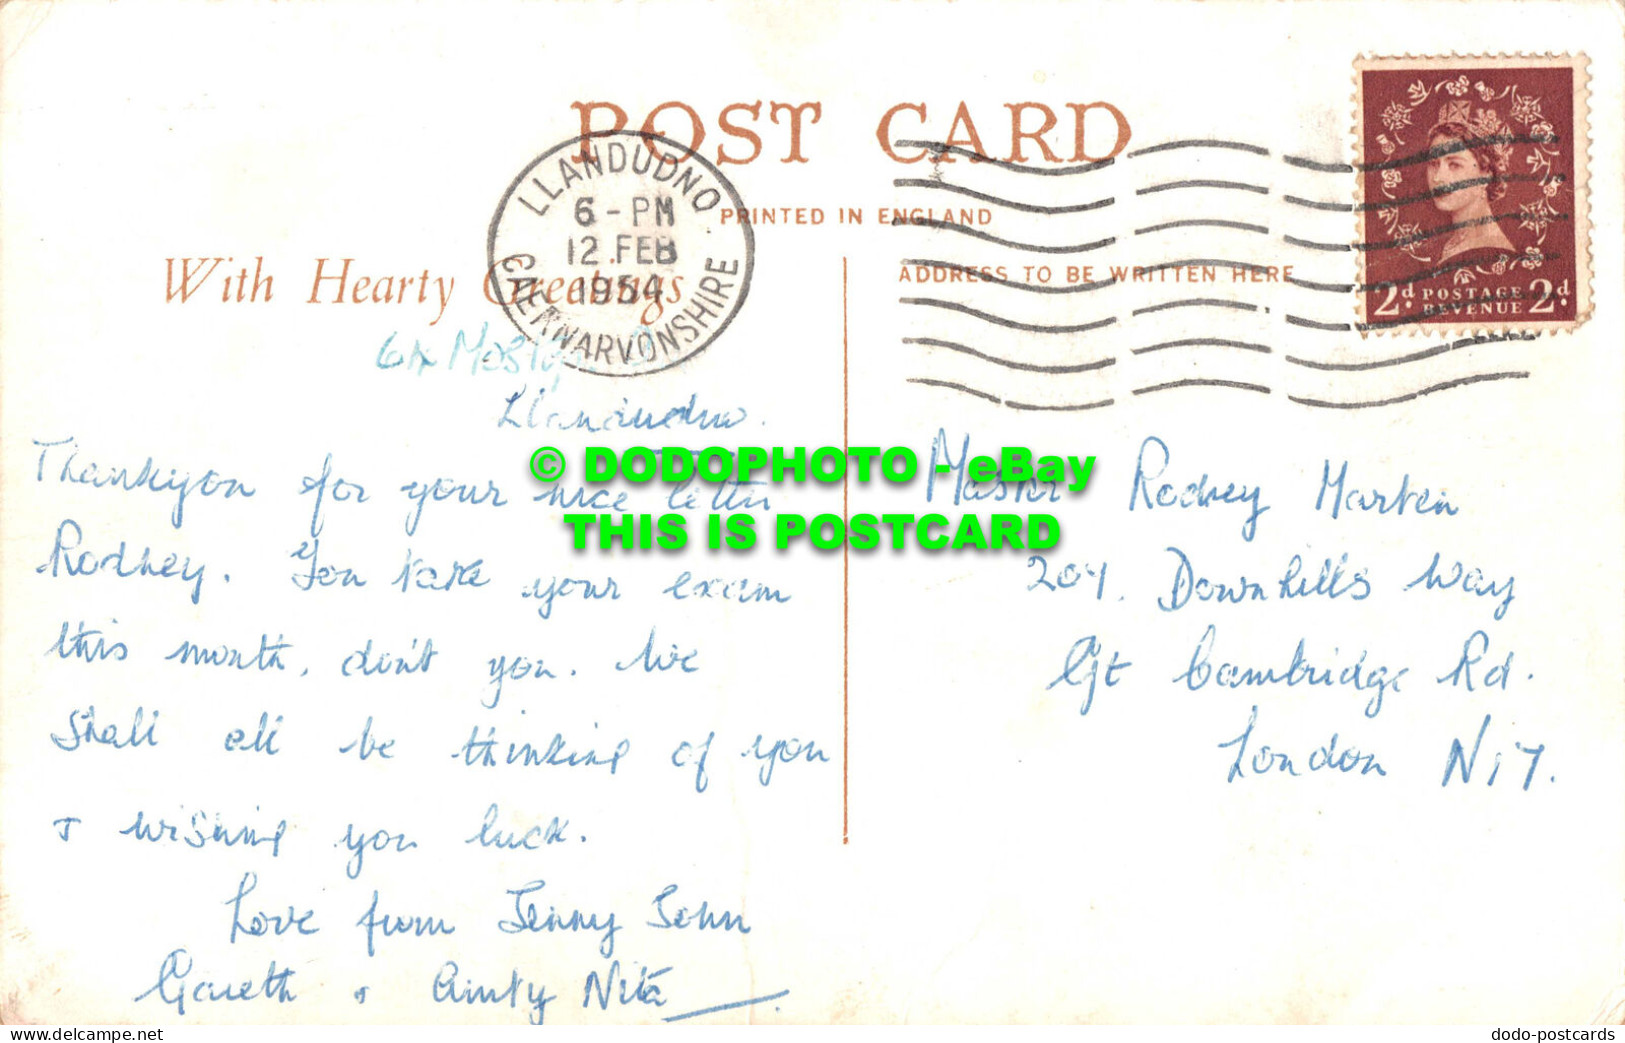 POST CARD
PRINTED IN ENGLAND
With Hearty Greetings
ADDRESS TO BE WRITTEN HERE
LLANDUDNO
6-PM
12 FEB
1954
CAERNARVONSHIRE
2d. POSTAGE REVENUE 2d.
Llandudno.
Thankyou for your nice letter
Rodney. You take your exam
this month, don't you. We
Shall all be thinking of you
& wishing you luck.
Love from Jenny John
Gareth & Aunty Nita
Master Rodney Marten
207. Downhills Way
Gt Cambridge Rd.
London N17.
© DODOPHOTO - eBay
THIS IS POSTCARD
https://www.delcampe.net
dodo-postcards